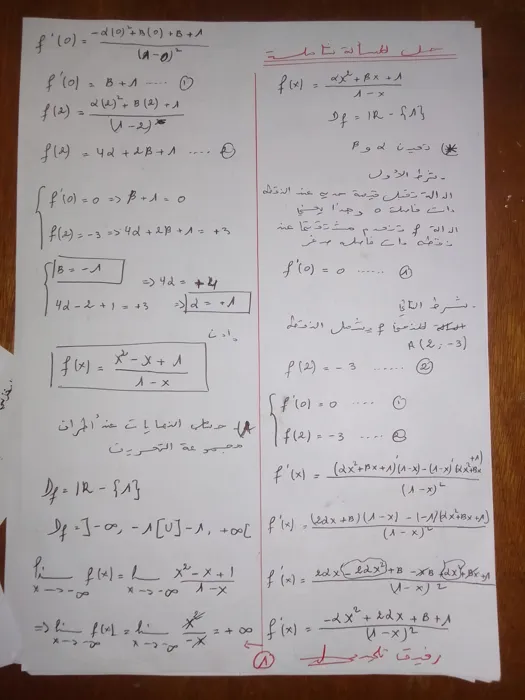 حل المسألة شاملة
f(x) = αx² + βx + 1 / 1 - x
Df = IR - {1}
تعيين α و β
شرط الأول
الدالة تقبل قيمة حدية عند النقطة
ذات فاصلة 0 وهذا يعني
الدالة f تنعدم مشتقتها عند
نقطة ذات فاصلة صفر
f'(0) = 0 ...... ①
شرط الثاني
المنحنى f يشمل النقطة
A(2; -3)
f(2) = -3 ...... ②
f'(0) = 0 .... ①
f(2) = -3 .... ②
f'(x) = (αx² + βx + 1)'(1-x) - (1-x)'(αx² + βx + 1) / (1-x)²
f'(x) = (2αx + β)(1-x) - (-1)(αx² + βx + 1) / (1-x)²
f'(x) = 2αx - 2αx² + β - xβ + αx² + βx + 1 / (1-x)²
f'(x) = -αx² + 2αx + β + 1 / (1-x)²
f'(0) = -α(0)² + 2α(0) + β + 1 / (1-0)²
f'(0) = β + 1 .... ①
f(2) = α(2)² + β(2) + 1 / (1-2)
f(2) = 4α + 2β + 1 .... ②
f'(0) = 0 => β + 1 = 0
f(2) = -3 => 4α + 2β + 1 = +3
β = -1 => 4α = +4
4α - 2 + 1 = +3 => α = +1
إذن
f(x) = x² - x + 1 / 1 - x
حساب النهايات عند أطراف
مجموعة التعريف
Df = IR - {1}
Df = ]-∞, -1[U]-1, +∞[
lim x→-∞ f(x) = lim x→-∞ x² - x + 1 / 1 - x
=> lim x→-∞ f(x) = lim x→-∞ x² / -x = +∞
①